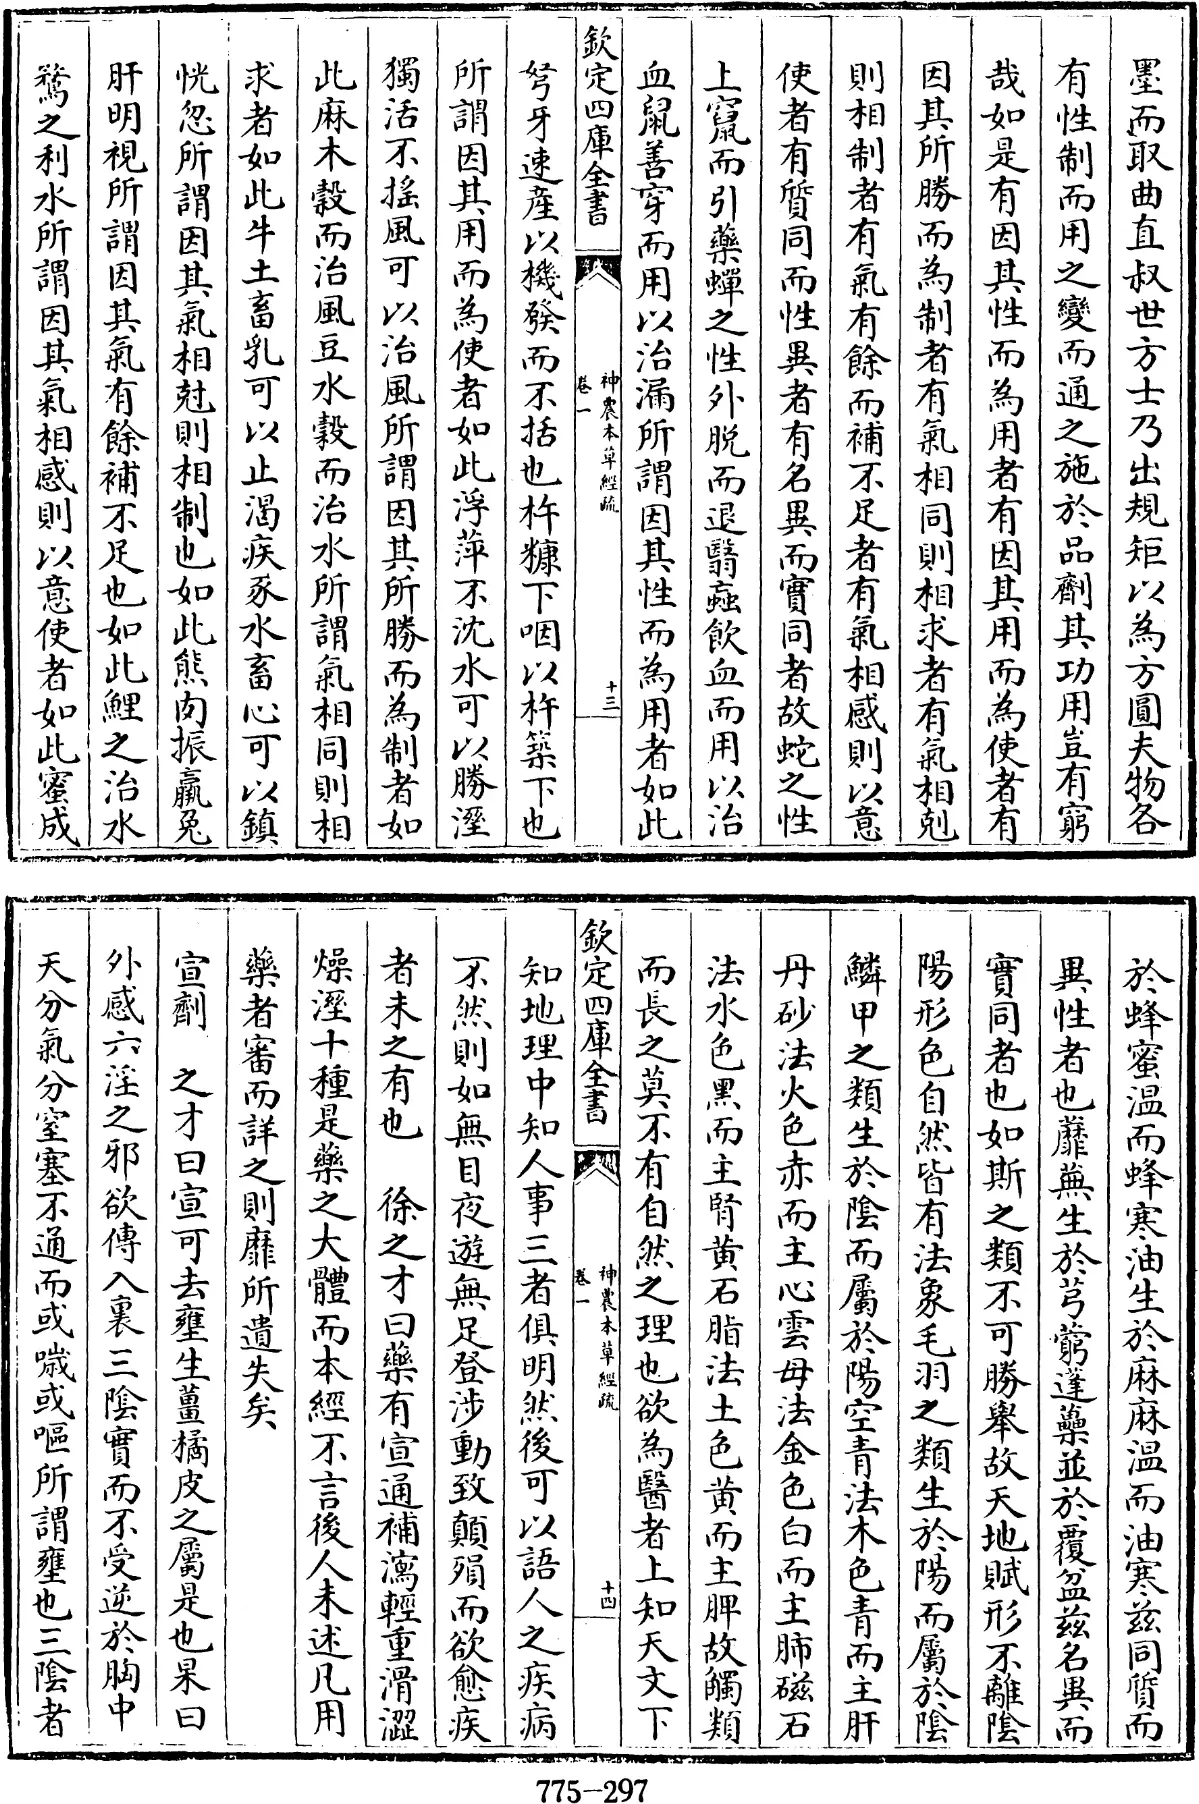 墨而取曲直叔世方士乃出規矩以為方圓夫物各
有性制而用之變而通之施於品劑其功用豈有窮
哉如是有因其性而為用者有因其用而為使者有
因其所勝而為制者有氣相同則相求者有氣相剋
則相制者有氣有餘而補不足者有氣相感則以意
使者有質同而性異者有名異而實同者故蛇之性
上竄而引藥蟬之性外脫而退翳蝱飲血而用以治
血鼠善穿而用以治漏所謂因其性而為用者如此
欽定四庫全書
神農本草經疏
卷一
十三
弩牙速產以機發而不括也杵糠下咽以杵築下也
所謂因其用而為使者如此浮萍不沈水可以勝溼
獨活不搖風可以治風所謂因其所勝而為制者如
此麻木穀而治風豆水穀而治水所謂氣相同則相
求者如此牛土畜乳可以止渴疾豕水畜心可以鎮
恍忽所謂因其氣相尅則相制也如此熊肉振羸兔
肝明視所謂因其氣有餘補不足也如此鯉之治水
鶩之利水所謂因其氣相感則以意使者如此蜜成
於蜂蜜温而蜂寒油生於麻麻温而油寒兹同質而
異性者也蘼蕪生於芎藭蓬蘽並於覆盆兹名異而
實同者也如斯之類不可勝舉故天地賦形不離陰
陽形色自然皆有法象毛羽之類生於陽而屬於陰
鱗甲之類生於陰而屬於陽空青法木色青而主肝
丹砂法火色赤而主心雲母法金色白而主肺磁石
法水色黑而主腎黄石脂法土色黄而主脾故觸類
而長之莫不有自然之理也欲為醫者上知天文下
欽定四庫全書
神農本草經疏
卷一
十四
知地理中知人事三者俱明然後可以語人之疾病
不然則如無目夜遊無足登涉動致顛殞而欲愈疾
者未之有也　徐之才曰藥有宣通補瀉輕重滑澀
燥溼十種是藥之大體而本經不言後人未述凡用
藥者審而詳之則靡所遺失矣
宣劑　之才曰宣可去壅生薑橘皮之屬是也杲曰
外感六淫之邪欲傳入裏三陰實而不受逆於胸中
天分氣分窒塞不通而或噦或嘔所謂壅也三陰者
775-297